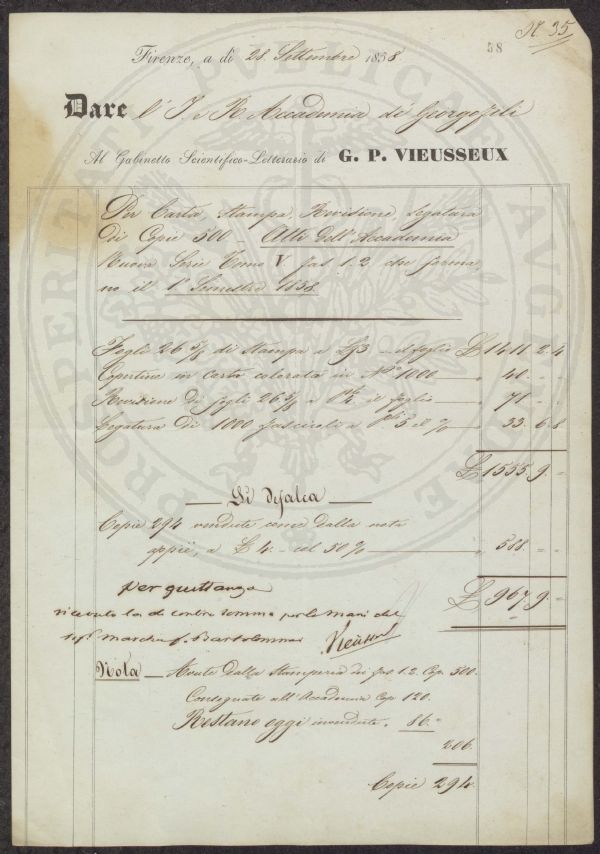 N. 35
58
Firenze, a dì 28. Settembre 1858
Dare l'I. e R. Accademia de' Georgofili
Al Gabinetto Scientifico-Letterario di G. P. VIEUSSEUX
Per Carta, Stampa, Revisione, Legatura
di Copie 500 – Atti dell'Accademia
Nuova Serie Tomo V fas. 1. 2. che forma-
no il 1º Semestre 1858
Fogli 26 5/8 di Stampa a £ 53 – il foglio £ 1411. 2. 4
Copertine in carta colorata in Nº 1000 „ 40. – –
Revisione di fogli 26 5/8 a il foglio „ 71 – –
Legatura di 1000 fascicoli a 5 il % „ 33. 6. 8
£ 1555. 9. –
Si defalca
Copie 294 vendute come dalla nota
appiè, a £ 4. – col 50 % „ 588. – –
£ 967. 9. –
per quittanza
ricevuto la di contro somma per le mani del
Sigr. March. f. Bartolommei Vieusseux
Nota – Avute dalla Stamperia dei fas. 1. 2. Cop. 500.
Consegnate all'Accademia Cop. 120.
Restano oggi invendute. 86. „
206.
Copie 294.
PROSPERITATI PVBLICAE AVGENDAE